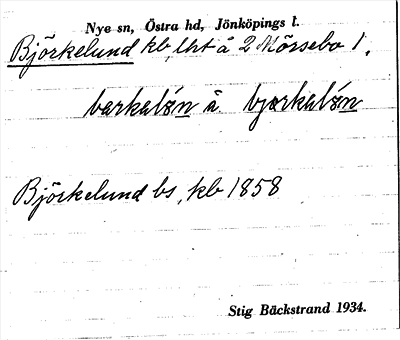 Nye sn, Östra hd, Jönköpings l.
Björkelund kb, lht å 2 Mörsebo 1.
barkalǿn å bjarkalǿn
Björkelund bs, kb 1858
Stig Bäckstrand 1934.